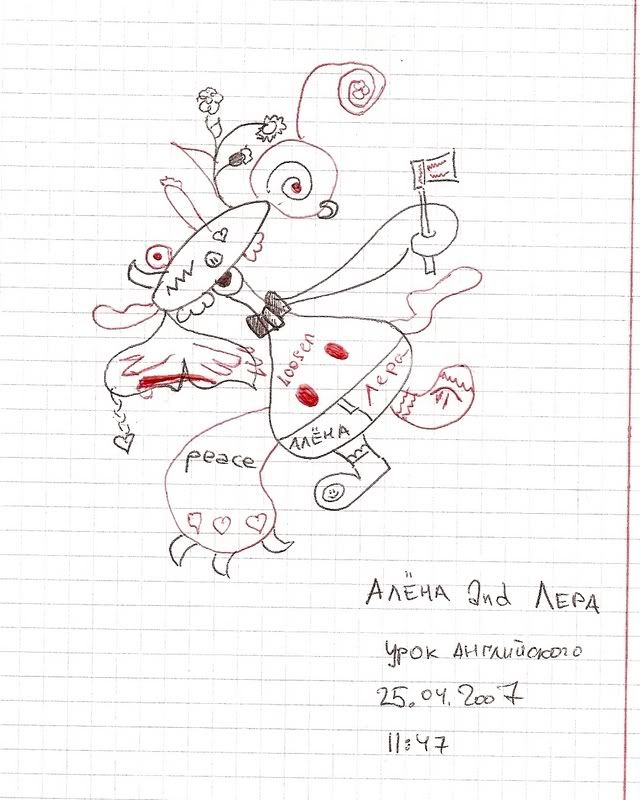 Loosen
Лера
АЛЁНА
peace
АЛЁНА and ЛЕРА
урок английского
25.04.2007
11:47